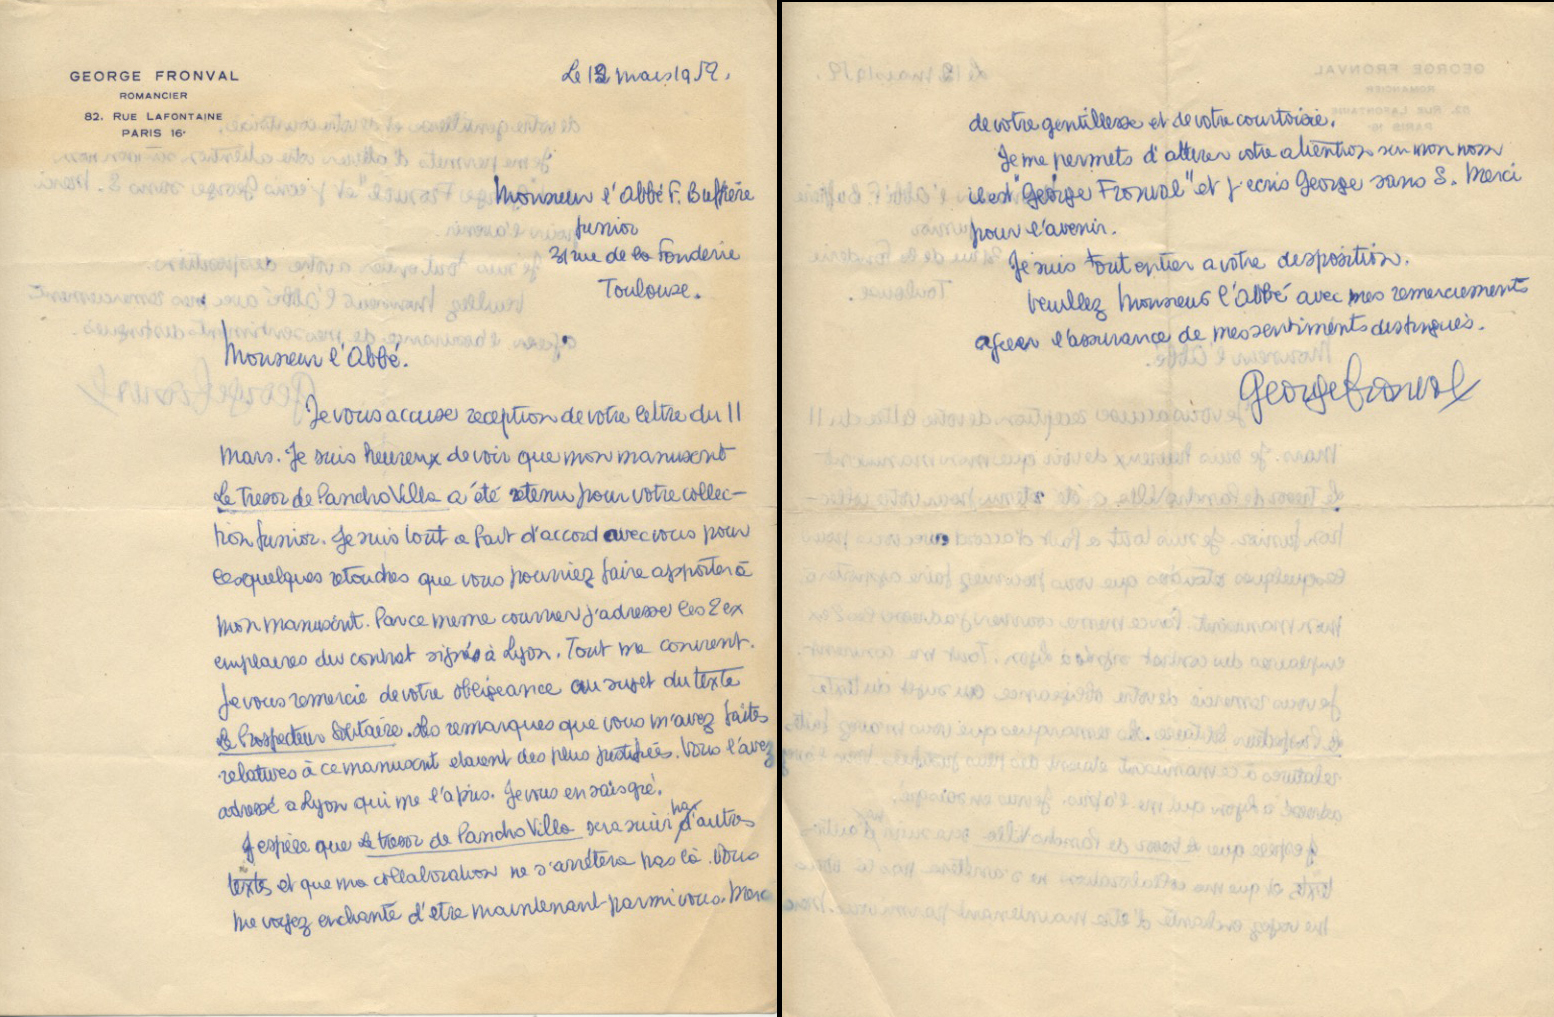 GEORGE FRONVAL
ROMANCIER
82. RUE LAFONTAINE
PARIS 16e
Le 12 mars 1952.
Monsieur l'Abbé F. Buffière
Junior
31 rue de la Fonderie
Toulouse.
Monsieur l'Abbé.
Je vous accuse reception de votre lettre du 11
Mars. Je suis heureux de voir que mon manuscrit
Le Tresor de Pancho Villa a été retenu pour votre collec-
tion Junior. Je suis tout a fait d'accord avec vous pour
les quelques retouches que vous pourriez faire apporter à
mon manuscrit. Par ce meme courrier j'adresse les 2 ex
emplaires du contrat signés à Lyon. Tout me convient.
Je vous remercie de votre obligeance au sujet du texte
Le Prospecteur Solitaire. Les remarques que vous m'avez faites
relatives à ce manuscrit etaient des plus justifiées. Vous l'avez
adressé a Lyon qui me l'a pris. Je vous en sais gré.
J'espère que Le tresor de Pancho Villa sera suivi par d'autres
textes et que ma collaboration ne s'arrêtera pas là. Vous
me voyez enchanté d'etre maintenant parmi vous. Merci
de votre gentillesse et de votre courtoisie.
Je me permets d'attirer votre attention sur mon nom
il est "George Fronval" et j'ecris George sans S. Merci
pour l'avenir.
Je suis tout entier a votre disposition.
Veuillez Monsieur l'Abbé avec mes remerciements
agreer l'assurance de mes sentiments distingués.
George Fronval